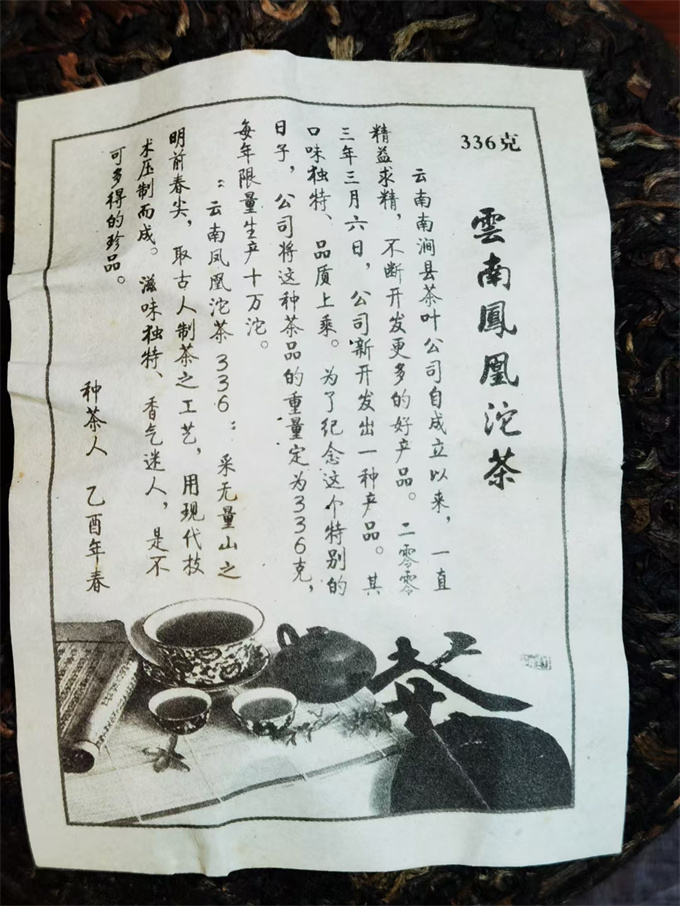 336克
雲南鳳凰沱茶
云南南涧县茶叶公司自成立以来，一直
精益求精，不断开发更多的好产品。二零零
三年三月六日，公司新开发出一种产品。其
口味独特、品质上乘。为了纪念这个特别的
日子，公司将这种茶品的重量定为336克，
每年限量生产十万沱。
：云南凤凰沱茶336：采无量山之
明前春尖，取古人制茶之工艺，用现代技
术压制而成。滋味独特、香气迷人，是不
可多得的珍品。
种茶人 乙酉年春
茶